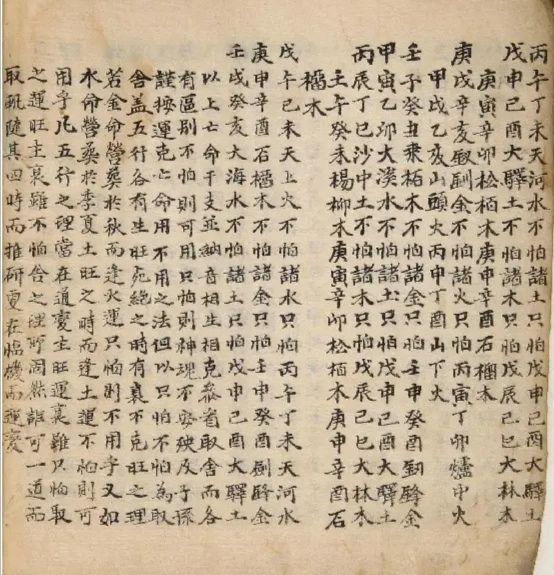 丙午丁未天河水不怕諸土只怕戊申己酉大驛土
戊申己酉大驛土不怕諸木只怕戊辰己巳大林木
庚寅辛卯松栢木庚申辛酉石榴木
庚戌辛亥釵釧金不怕諸火只怕丙寅丁卯爐中火
甲戌乙亥山頭火丙申丁酉山下火
壬子癸丑桒柘木不怕諸金只怕壬申癸酉劒鋒金
甲寅乙卯大溪水不怕諸土只怕戊申己酉大驛土
丙辰丁巳沙中土不怕諸木只怕戊辰己巳大林木
壬午癸未楊柳木庚寅辛卯松栢木庚申辛酉石
榴木
戊午己未天上火不怕諸水只怕丙午丁未天河水
庚申辛酉石榴木不怕諸金只怕壬申癸酉劒鋒金
壬戌癸亥大海水不怕諸土只怕戊申己酉大驛土
以上亡命干支並納音相生相克叅看取舍而各
有區別不怕則可用只怕則神魂不安殃及子孫
謹按運克亡命用不用之法但以只怕不怕為取
舍盖五行各有生旺死絶之時有衰不克旺之理
若金命營葬於秋而逢火運只怕則不用乎又如
水命營葬於季夏土旺之時而逢土運不怕則可
用乎凡五行之理當在通變主旺運衰雖只怕取
之運旺主衰雖不怕舍之理所固然誰可一道而
取執隨其四時而推研更在臨機而運變